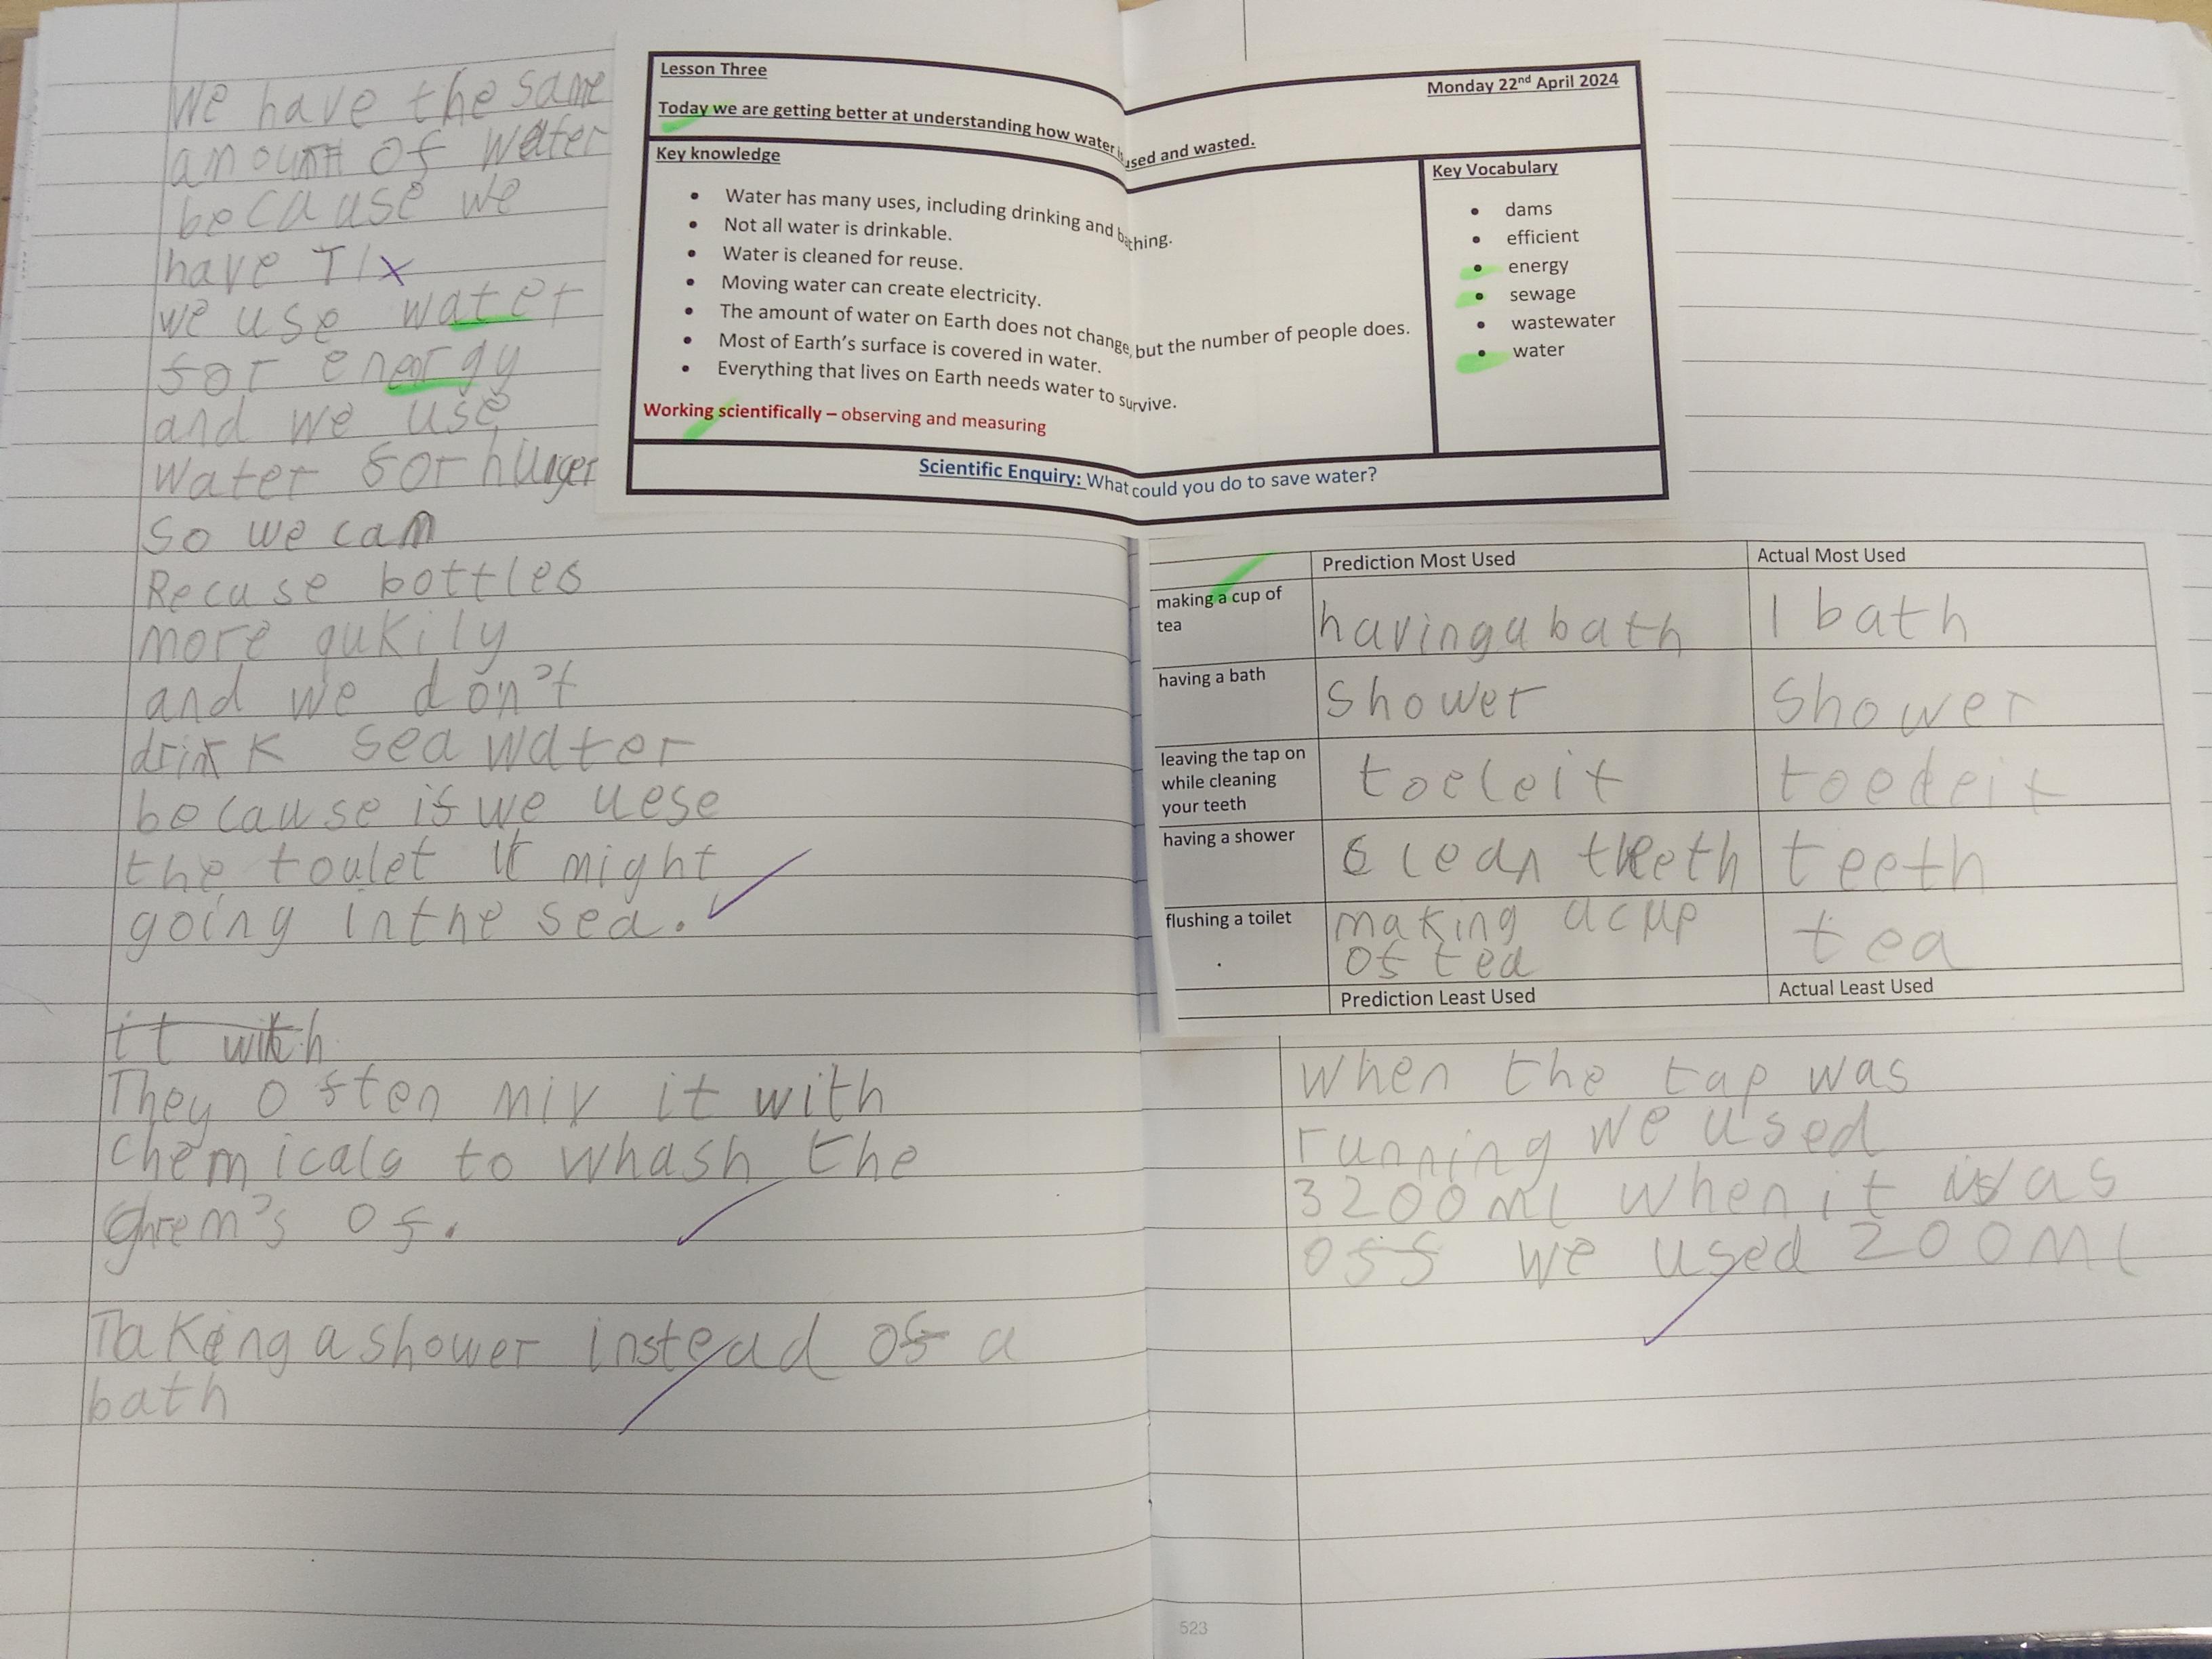 We have the same
amount of water
because we
have T/x
we use water
for energy
and we use
water for hunger
so we can
Recuse bottles
more qukily
and we don't
drink sea water
because if we uese
the toulet it might
going in the sea.
it with
They often mix it with
chemicals to whash the
grem's of.
Taking a shower instead of a
bath
Lesson Three
Monday 22nd April 2024
Today we are getting better at understanding how water is used and wasted.
Key knowledge
• Water has many uses, including drinking and bathing.
• Not all water is drinkable.
• Water is cleaned for reuse.
• Moving water can create electricity.
• The amount of water on Earth does not change, but the number of people does.
• Most of Earth's surface is covered in water.
• Everything that lives on Earth needs water to survive.
Working scientifically – observing and measuring
Key Vocabulary
• dams
• efficient
• energy
• sewage
• wastewater
• water
Scientific Enquiry: What could you do to save water?
Prediction Most Used
Actual Most Used
making a cup of
tea
having a bath
1 bath
having a bath
shower
shower
leaving the tap on
while cleaning
your teeth
toeleit
toedeit
having a shower
clean teeth
teeth
flushing a toilet
making a cup
of tea
tea
Prediction Least Used
Actual Least Used
When the tap was
running we used
3200ml when it was
off we used 200ml
523